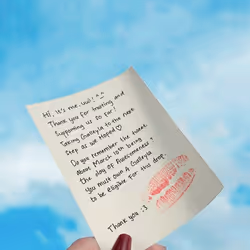 Hi, it's me, uwu! ^-^
Thank you for trusting and
supporting us so far!
Taking Guateyla to the next
step as we hoped ♡
Do you remember the tweet
about March 10th being
the day of Awesomeness?
You must own A Guateyla
to be eligible for this drop.
Thank you :3